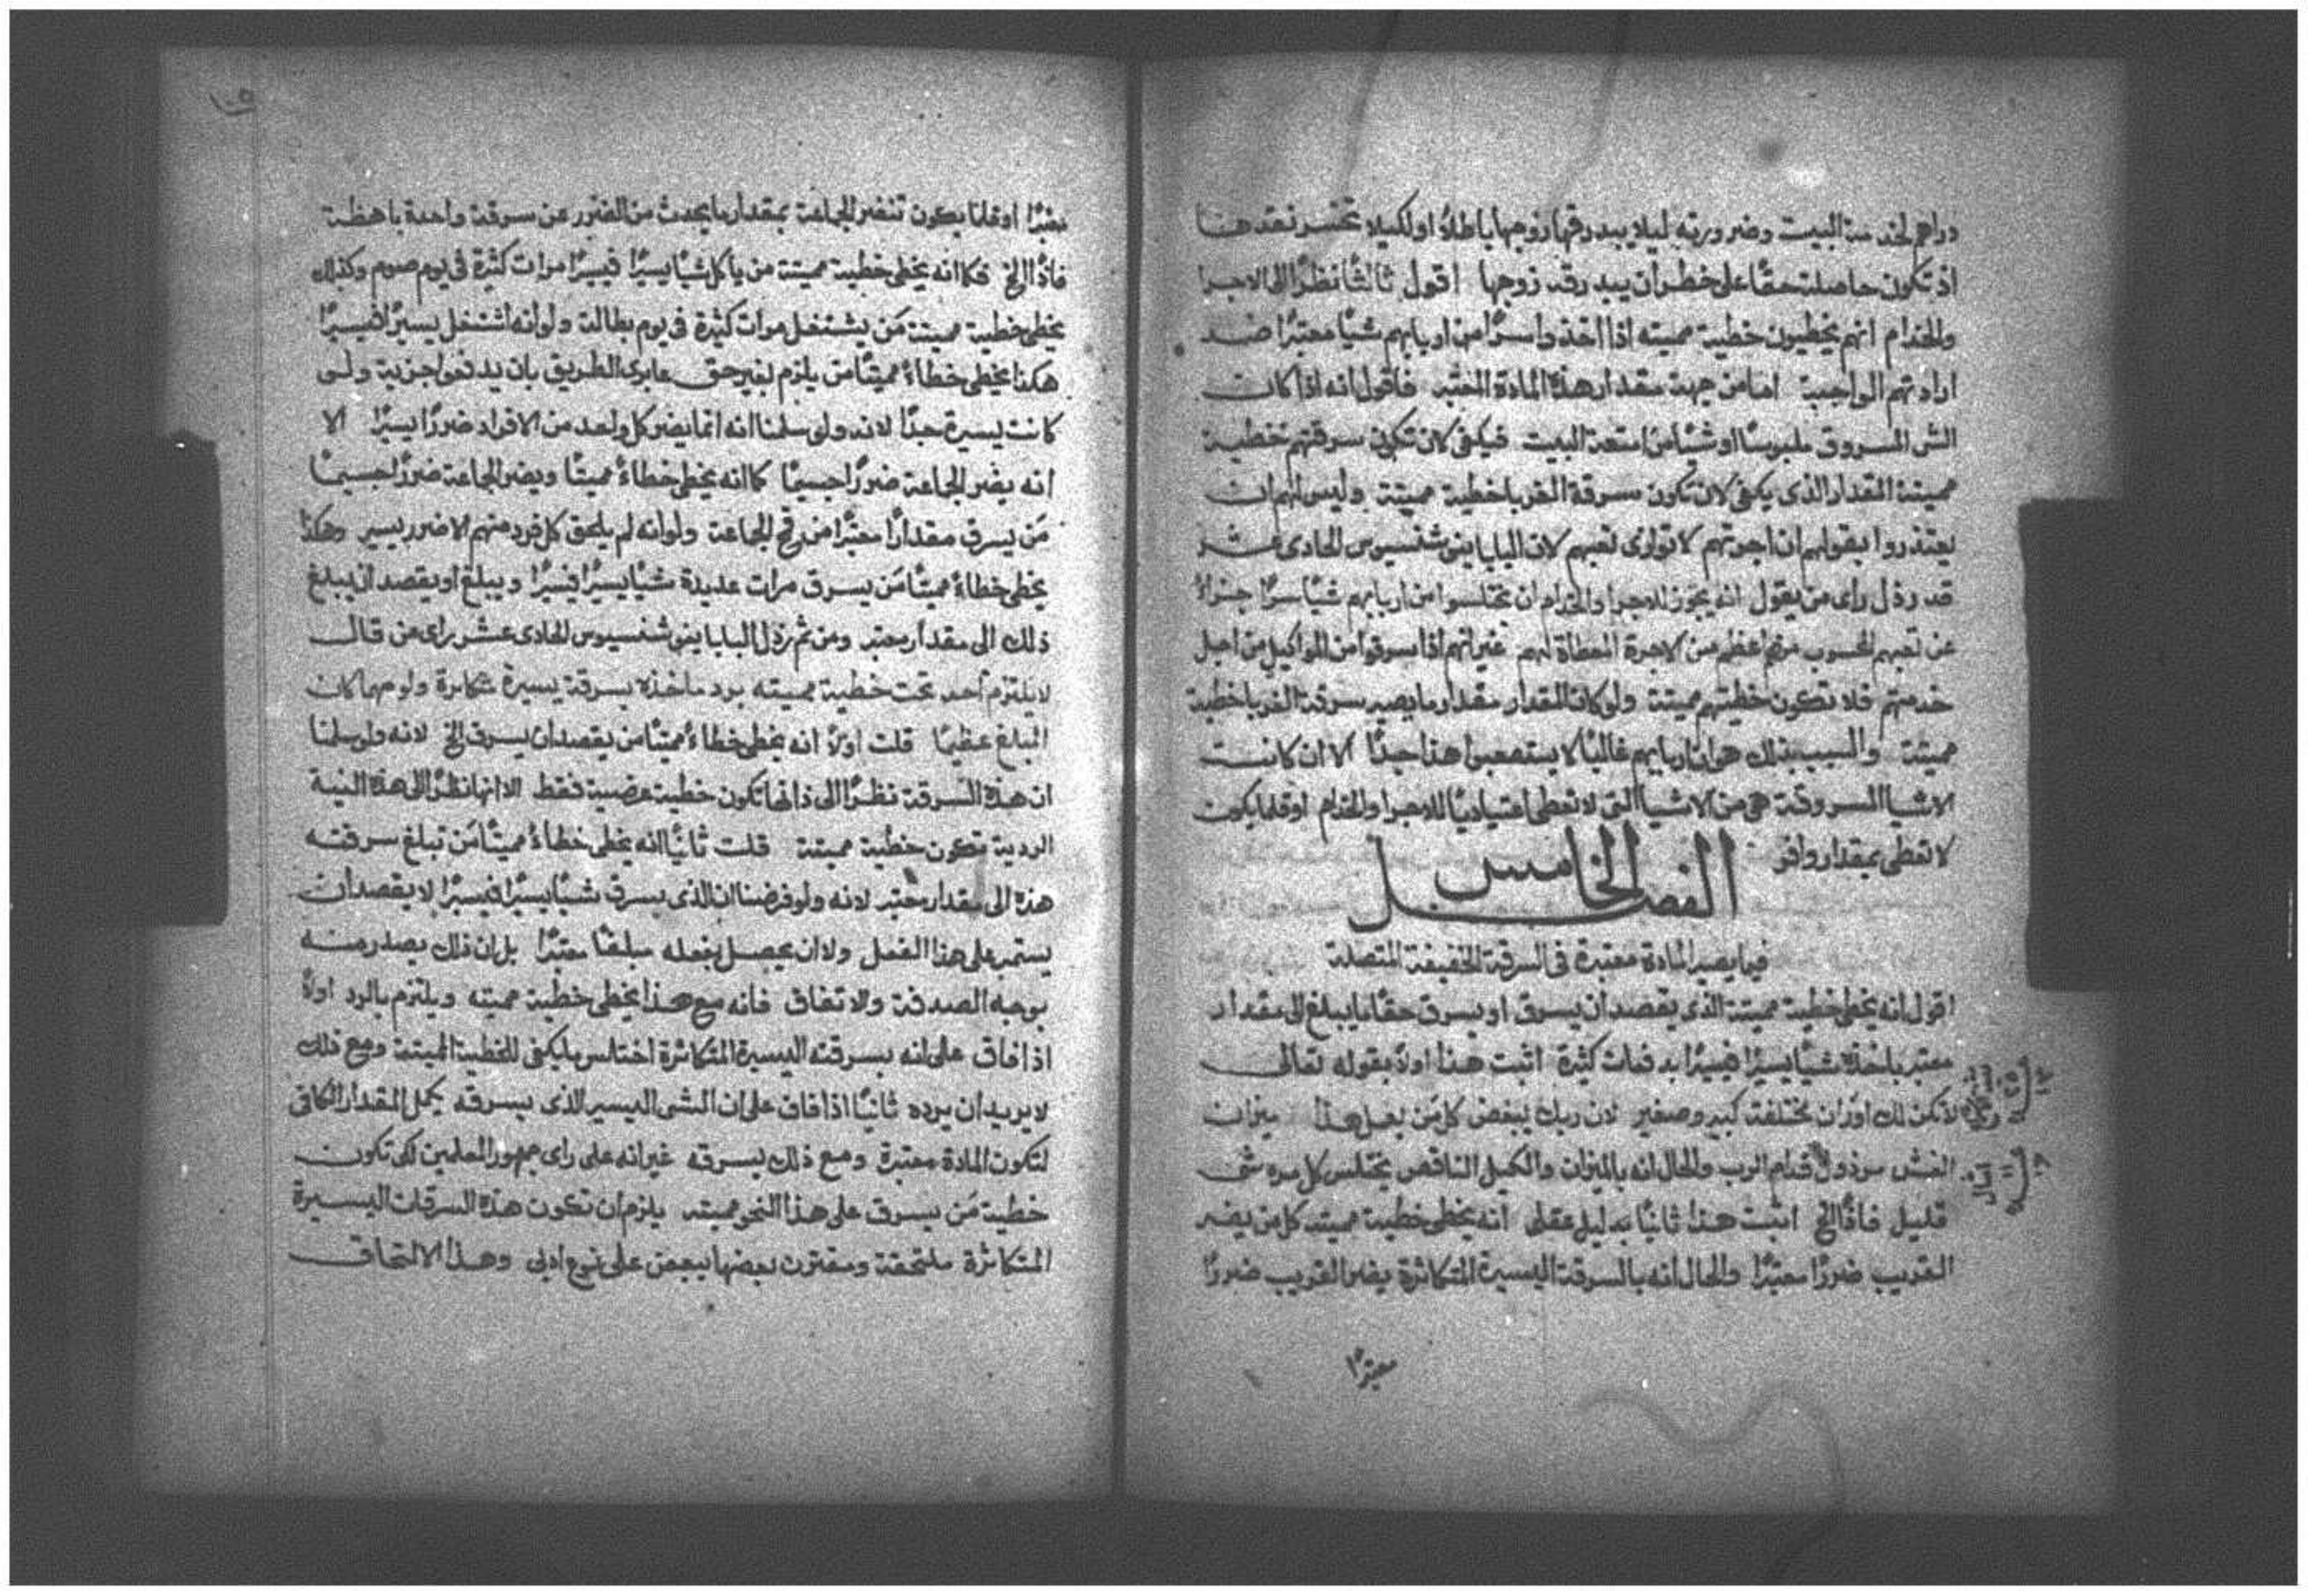 دراهم لخدمة البيت وضرورته ليلا يبدرقها زوجها باطلاً او لكيلا تخسر نقدها
اذ تكون حاصلة حقًا على خطر ان يبدرقه زوجها اقول ثالثًا نظرًا الى الاجرا
والخدام انهم يخطيون خطية مميته اذا اخذوا سرًا من اربابهم شيًا معتبرًا ضد
ارادتهم الواجبة اما من جهة مقدار هذه المادة المعتبر فاقول انه اذا كان
الشي المسروق ملبوسًا او شيًا من امتعة البيت فيكفي لان تكون سرقتهم خطية
مميتة المقدار الذي يكفي لان تكون سرقة الغربا خطية مميتة وليس لهم ان
يعتذروا بقولهم ان اجرتهم لا توازي تعبهم لان البابا اينوشنسيوس الحادي عشر
قد رذل راى من يقول انه يجوز للاجرا والخدام ان يختلسوا من اربابهم شيًا سرًا جزاءً
عن تعبهم المحسوب منهم اعظم من الاجرة المعطاة لهم غير انهم اذا سرقوا من المواكيل من اجل
خدمتهم فلا تكون خطيتهم مميتة ولو كان المقدار مقدار ما يصير سرقة الغربا خطية
مميتة والسبب بذلك هو ان اربابهم غالبًا لا يستصعبوا هذا جدًا الا ان كانت
الاشيا المسروقة هي من الاشيا التي لا تعطى اعتياديًا للاجرا والخدام او قلما يكون
لا تعطى بمقدار وافر
الفصل الخامس
فيما يصير المادة معتبرة في السرقة الخفيفة المتصلة
اقول انه يخطي خطية مميتة الذي يقصد ان يسرق او يسرق حقًا ما يبلغ الى مقدار
معتبر باخذه شيًا يسيرًا فيسيرًا بدفعات كثيرة اثبت هذا اولاً بقوله تعالى
لا تكن لك اوزان مختلفة كبير وصغير لان ربك يبغض كل من يعمل هذا ميزان
الغش مرذول قدام الرب والحال انه بالميزان والكيل الناقص يختلس كل مره شي
قليل فاذًا الخ اثبت هذا ثانيًا بدليل عقلي انه يخطي خطية مميته كل من يضر
القريب ضررًا معتبرًا والحال انه بالسرقة اليسيرة المتكاثرة يضر القريب ضررًا
معتبرًا
معتبرًا او قلما يكون تنضر الجماعة بمقدار ما يحدث من الضرر عن سرقة واحدة باهظة
فاذًا الخ فكما انه يخطي خطية مميتة من ياكل شيًا يسيرًا فيسيرًا مرات كثيرة في يوم صوم وكذلك
يخطي خطية مميتة مَن يشتغل مرات كثيرة في يوم بطالة ولو انه اشتغل يسيرًا فيسيرًا
هكذا يخطي خطاءً مميتًا من يلزم بغير حق عابري الطريق بان يدفعوا جزية ولو
كانت يسيرة جدًا لانه ولو سلمنا انه انما يضر كل واحد من الافراد ضررًا يسيرًا الا
انه يضر الجماعة ضررًا جسيمًا كما انه يخطي خطاءً مميتًا ويضر الجماعة ضررًا جسيمًا
مَن يسرق مقدارًا معتبرًا من قمح الجماعة ولو انه لم يلحق كل فرد منهم الا ضرر يسير وهكذا
يخطي خطاءً مميتًا مَن يسرق مرات عديدة شيًا يسيرًا فيسيرًا ويبلغ او يقصد ان يبلغ
ذلك الى مقدار معتبر ومن ثم رذل البابا اينوشنسيوس الحادي عشر راى من قال
لا يلتزم احد تحت خطية مميته برد ما اخذه بسرقة يسيرة متكاثرة ولو مهما كان
المبلغ عظيمًا قلت اولاً انه يخطي خطاءً مميتًا من يقصد ان يسرق الخ لانه ولو سلمنا
ان هذه السرقة نظرًا الى ذاتها تكون خطية عرضية فقط الا انها نظرًا الى هذه النية
الردية تكون خطية مميتة قلت ثانيًا انه يخطي خطاءً مميتًا مَن تبلغ سرقته
هذه الى مقدار معتبر لانه ولو فرضنا ان الذي يسرق شيًا يسيرًا فيسيرًا لا يقصد ان
يستمر على هذا الفعل ولا ان يحصل بفعله مبلغًا معتبرًا بل ان ذلك يصدر منه
بوجه الصدفة والاتفاق فانه مع هذا يخطي خطية مميته ويلتزم بالرد اولاً
اذا فاق على انه بسرقته اليسيرة المتكاثرة اختلس ما يكفي للخطية المميتة ومع ذلك
لا يريد ان يرده ثانيًا اذا فاق على ان الشي اليسير الذي يسرقه يكمل المقدار الكافي
لتكون المادة معتبرة ومع ذلك يسرقه غير انه على راى جمهور المعلمين لكي تكون
خطية مَن يسرق على هذا النحو مميته يلزم ان تكون هذه السرقات اليسيرة
المتكاثرة ملتحقة ومقترن بعضها ببعض على نوع ادبي وهذا الالتحاق